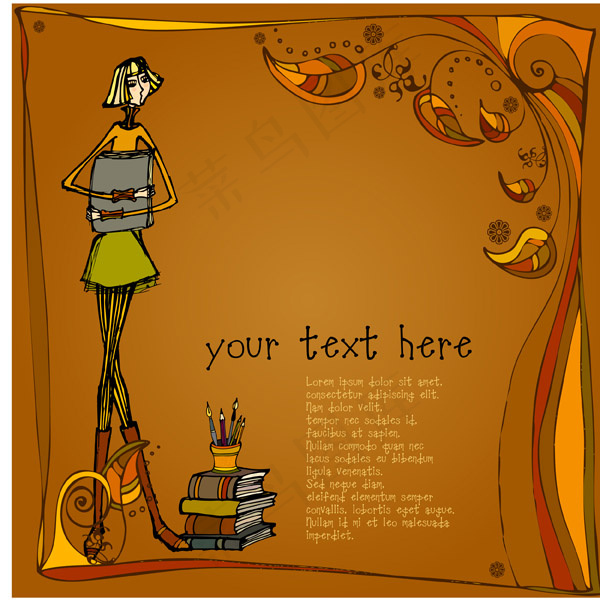 your text here
Lorem ipsum dolor sit amet,
consectetur adipiscing elit.
Nam dolor velit,
tempor nec sodales id,
faucibus at sapien.
Nullam commodo quam nec
lacus sodales eu bibendum
ligula venenatis.
Sed neque diam,
eleifend elementum semper
convallis, lobortis eget augue.
Nullam id mi et leo malesuada
imperdiet.